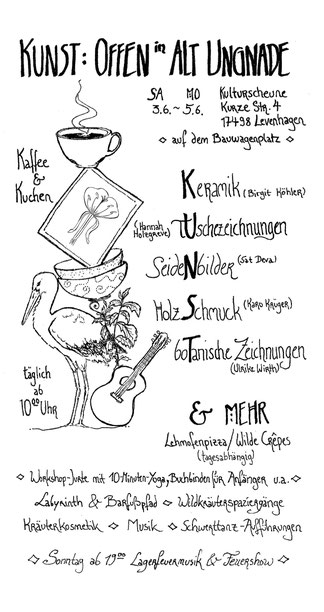 KUNST: OFFEN in ALT UNGNADE
SA MO
3.6. ~ 5.6.
Kulturscheune
Kurze Str. 4
17498 Levenhagen
auf dem Bauwagenplatz
Kaffee
&
Kuchen
Keramik (Birgit Höhler)
(Hannah Holtgreve) TUschezeichnungen
SeideNbilder (Sat Deva)
Holz Schmuck (Karo Krüger)
boTanische Zeichnungen
(Ulrike Wirth)
täglich
ab
10⁰⁰ Uhr
& MEHR
Lehmofenpizza / Wilde Crêpes
(tagesabhängig)
Workshop-Jurte mit 10-Minuten-Yoga, Buchbinden für Anfänger u.a.
Labyrinth & Barfußpfad Wildkräuterspaziergänge
Kräuterkosmetik Musik Schwerttanz-Aufführungen
Sonntag ab 19⁰⁰ Lagerfeuermusik & Feuershow